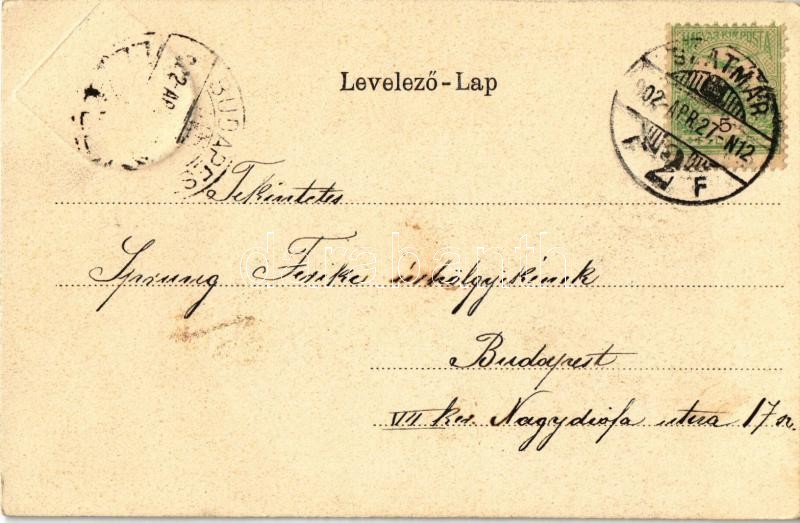 MAGYAR KIR. POSTA
SZATMÁR
902 APR. 27 N12
5
2
F
BUDAPEST
Levelező-Lap
Tekintetes
Sprung Ferike úrhölgyének
darabanth
Budapest
VII ker. Nagydiófa utcza 17 sz.